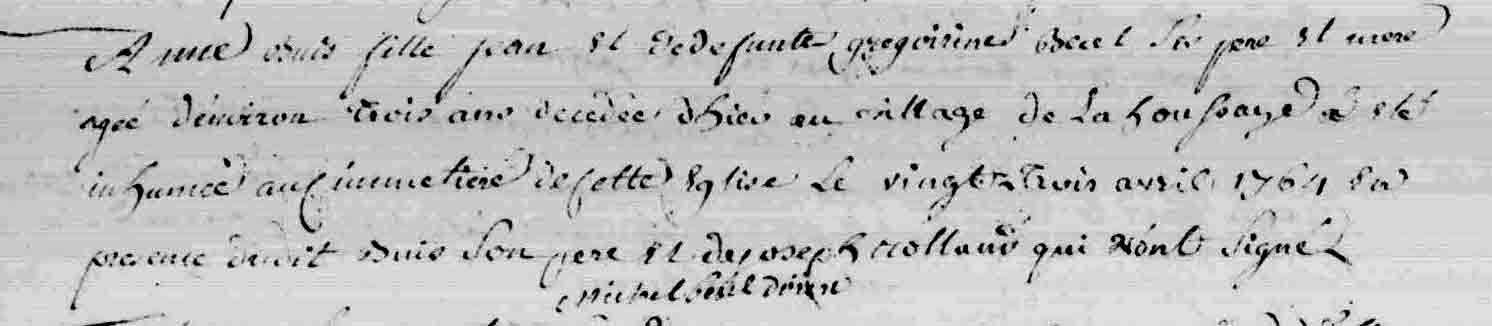 Anne Buis fille jean et de defunte gregoirine Becel Ses pere et mere
agée d'environ trois ans decedée d'hier au village de La houssaye a eté
inhumée au Cimmetiere de Cette Eglise Le vingt trois avril 1764 en
presence dudit Buis Son pere et de joseph rolland qui n'ont Signé
Michel